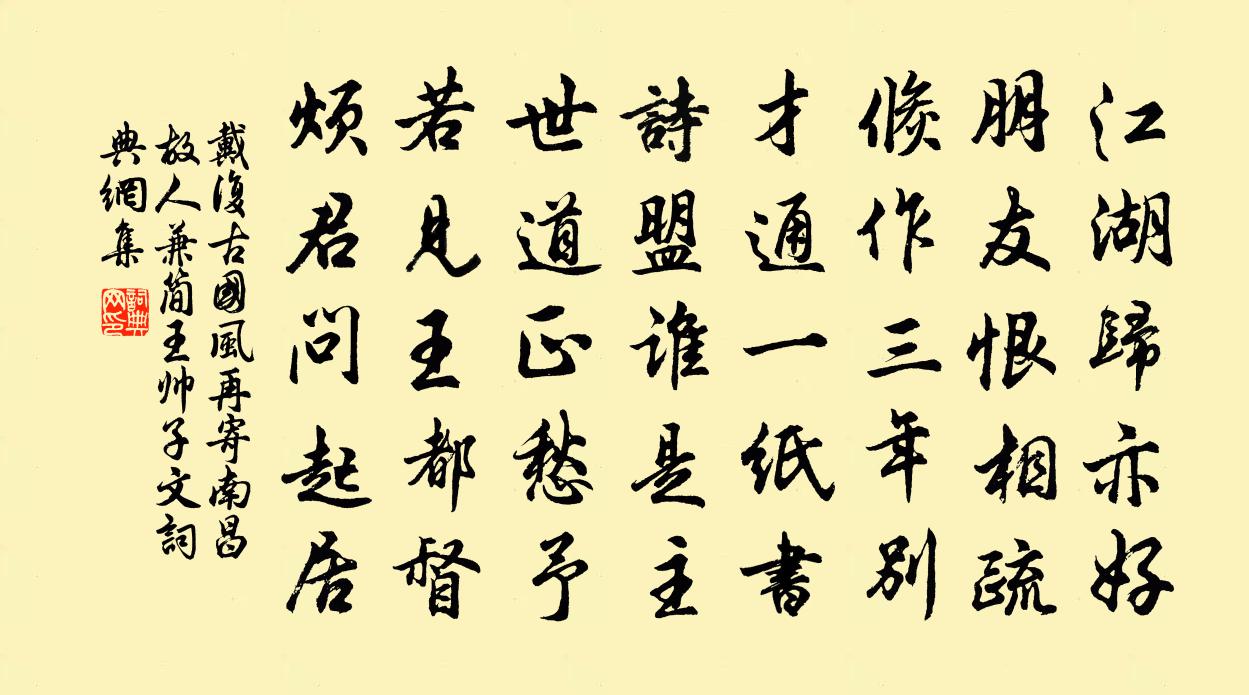 江湖歸亦好
朋友恨相疏
倐作三年別
才通一紙書
詩盟誰是主
世道正愁予
若見王都督
煩君問起居
戴復古國風再寄南昌
故人兼簡王帅子文詞
典網集
詞典
网印